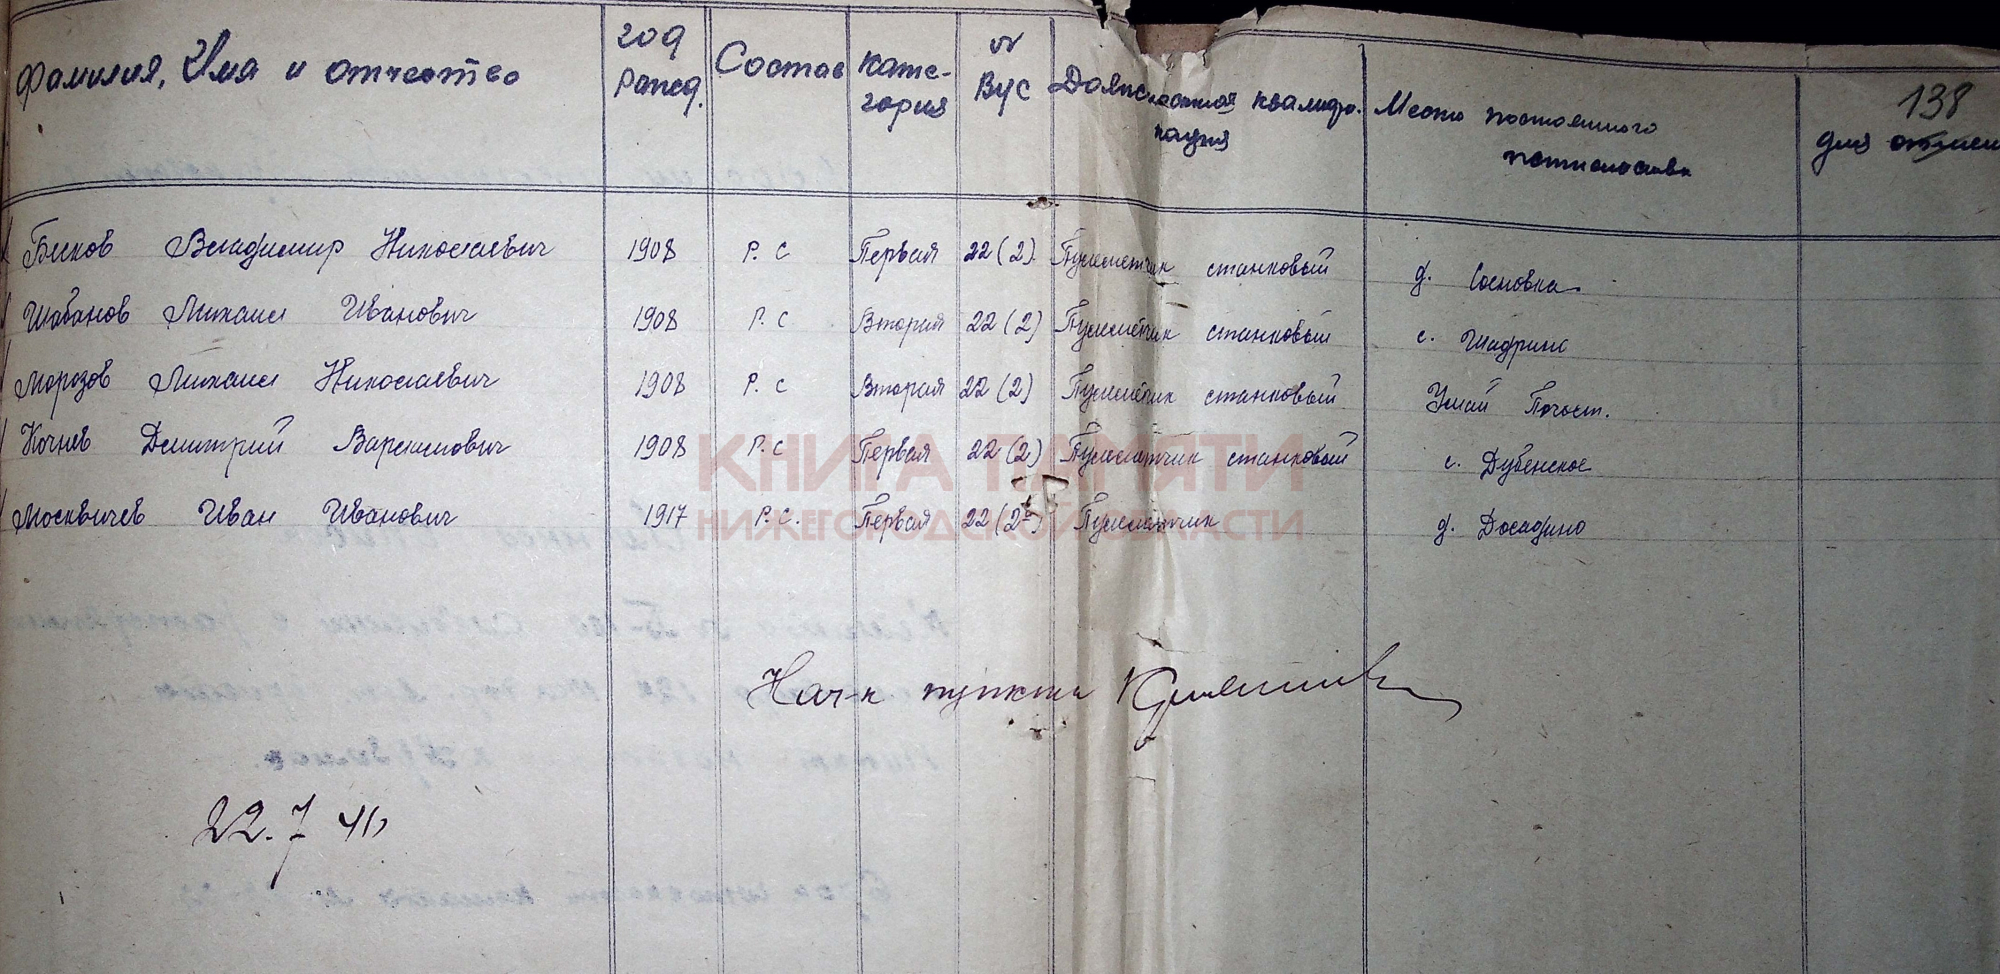 138
Фамилия, Имя и отчество год рожд. Состав Кате-гория № ВУС Должностная квалифи-кация Место постоянного жительства для отметок
Бесков Владимир Николаевич 1908 Р.С Первая 22(2) Пулеметчик станковый д. Сосновка
Шабанов Михаил Иванович 1908 Р.С Вторая 22(2) Пулеметчик станковый с. Шадрино
Морозов Михаил Николаевич 1908 Р.С Вторая 22(2) Пулеметчик станковый Усад Погост.
Кочнев Дмитрий Варламович 1908 Р.С Первая 22(2) Пулеметчик станковый с. Дубенское
Москвичев Иван Иванович 1917 Р.С. Первая 22(2) Пулеметчик д. Досадино
КНИГА ПАМЯТИ
НИЖЕГОРОДСКОЙ ОБЛАСТИ
Нач-к пункта
22.7 41